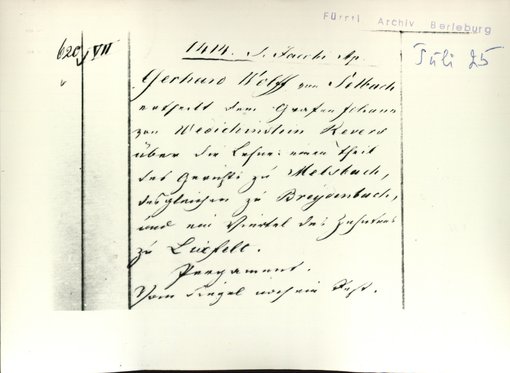 Fürstl. Archiv Berleburg
620/VII
Juli 25
1414. S. Jacobi Ap.
Gerhard Wolff von Selbach
ertheilt dem Grafen Johann
von Revers
über die Lehne: einen Theil
des Gerichts zu Melsbach,
desgleichen zu Breydenbach,
und ein Viertel des Zehnten
zu Luxfelt.
Pergament.
Vom Siegel noch ein Rest.